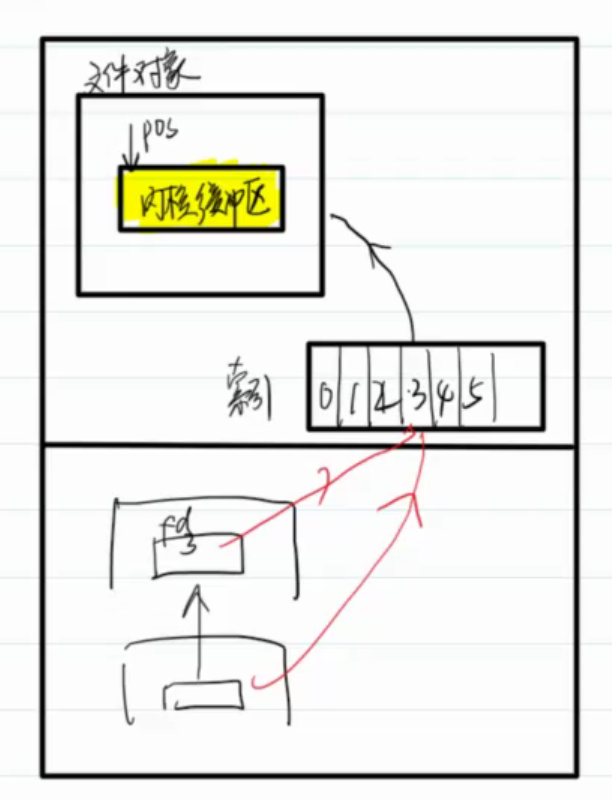 文件对象
pos
内核缓冲区
索引
0 1 2 3 4 5
fd
3